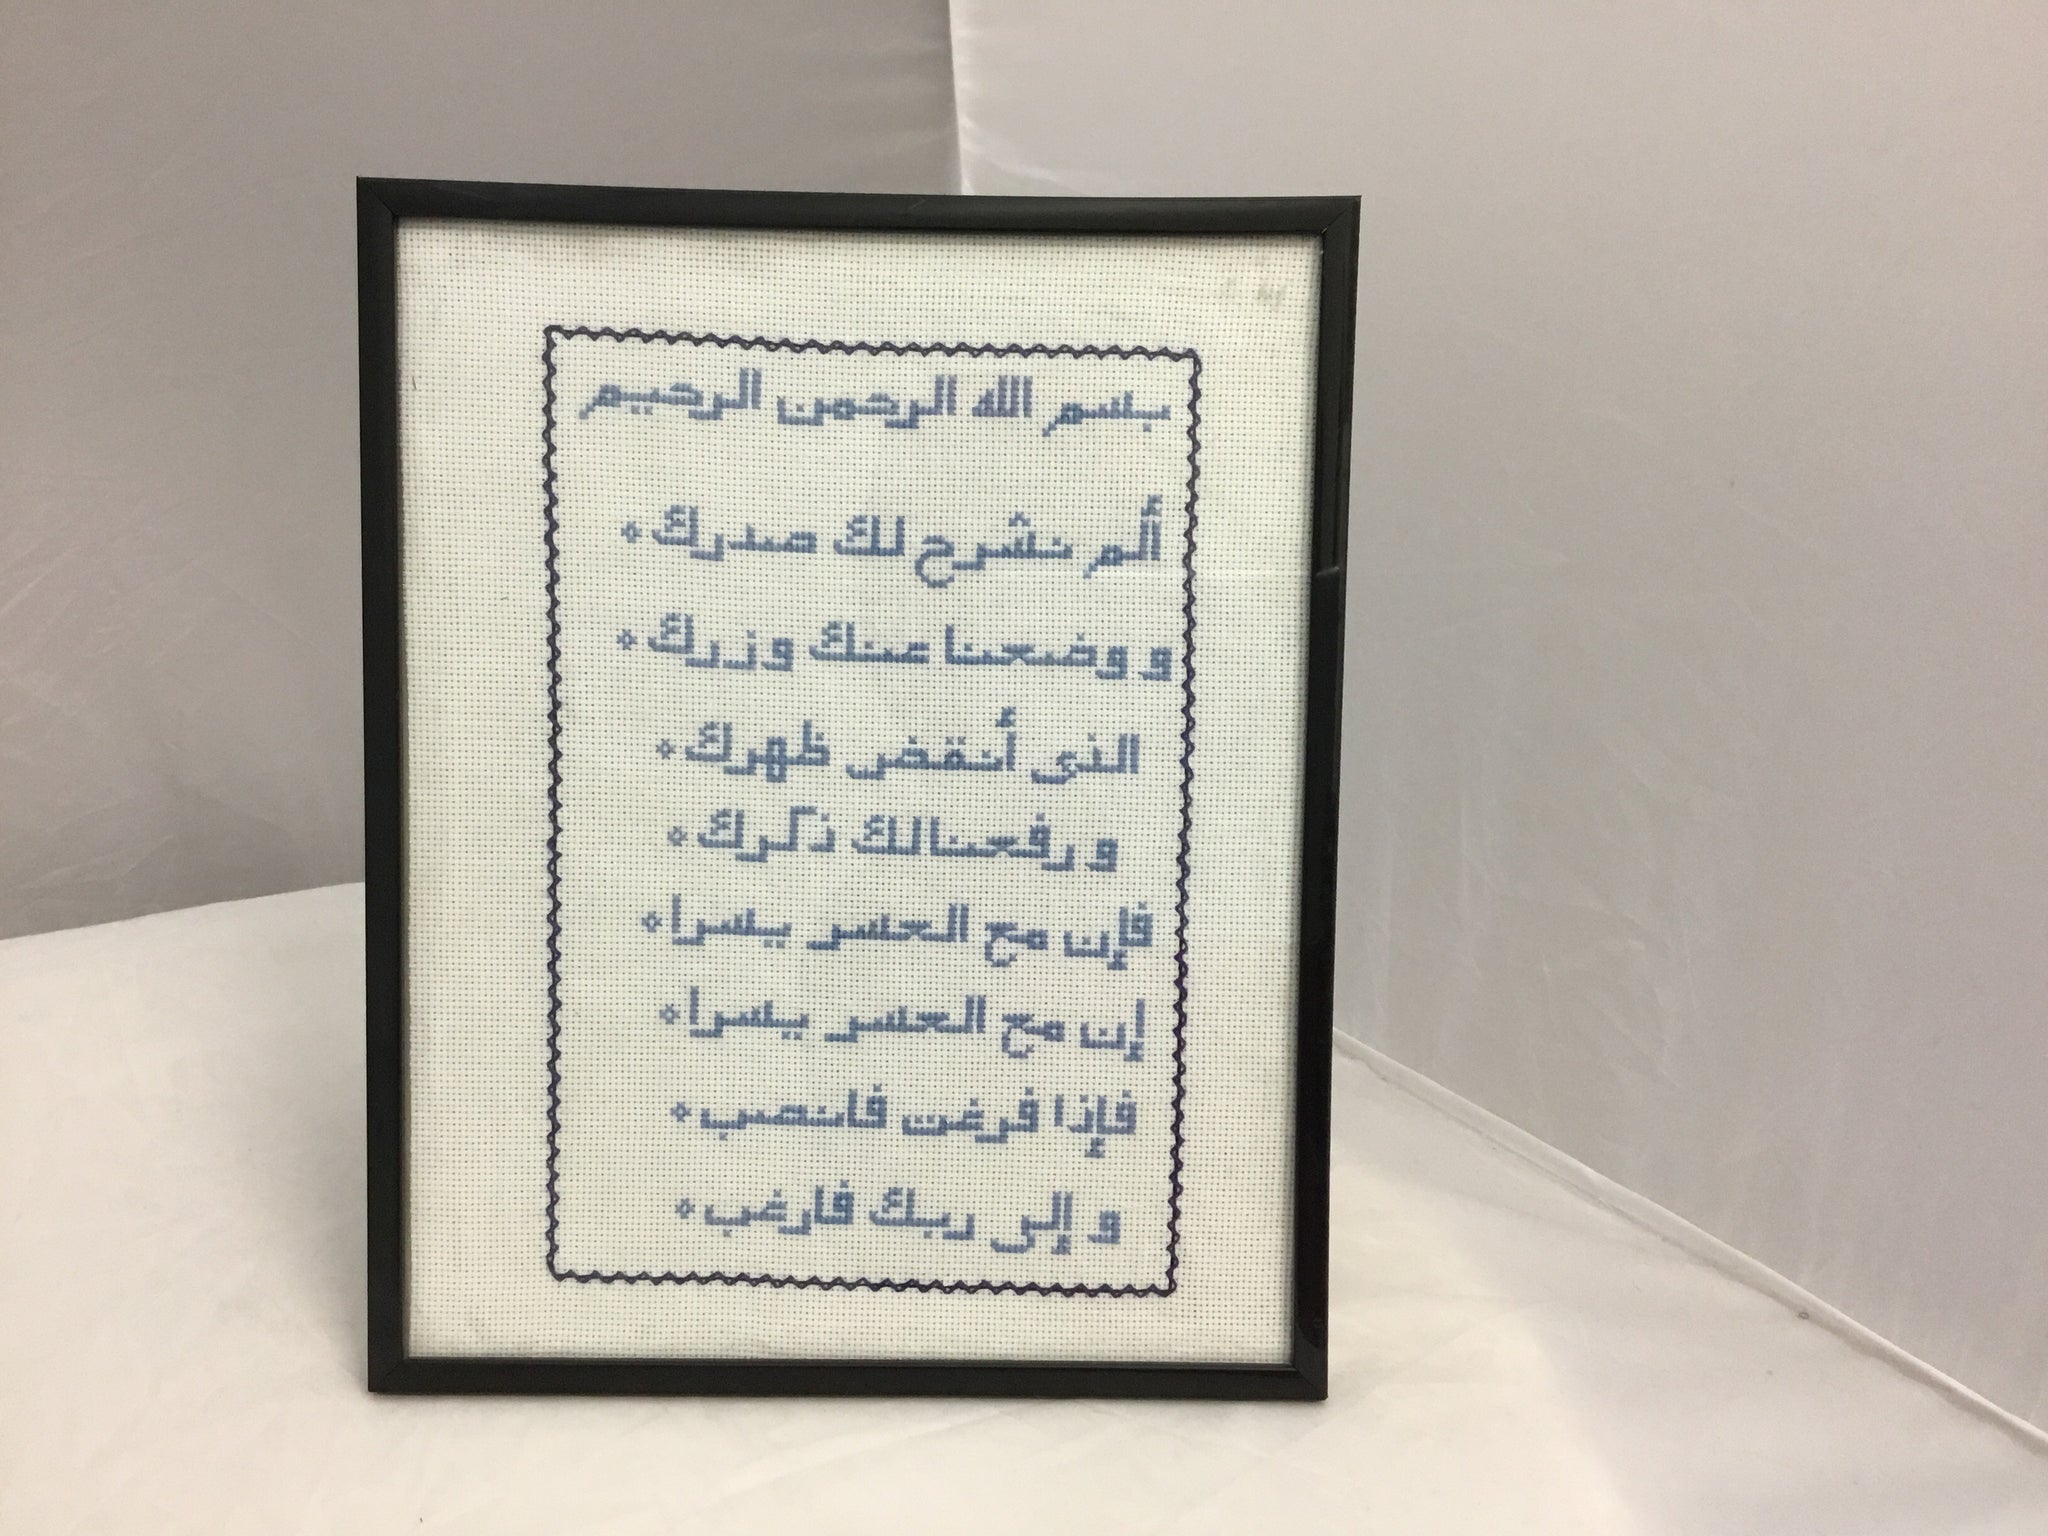 بسم الله الرحمن الرحيم
ألم نشرح لك صدرك
و وضعنا عنك وزرك
الذى أنقض ظهرك
و رفعنا لك ذكرك
فإن مع العسر يسرا
إن مع العسر يسرا
فإذا فرغت فانصب
و إلى ربك فارغب